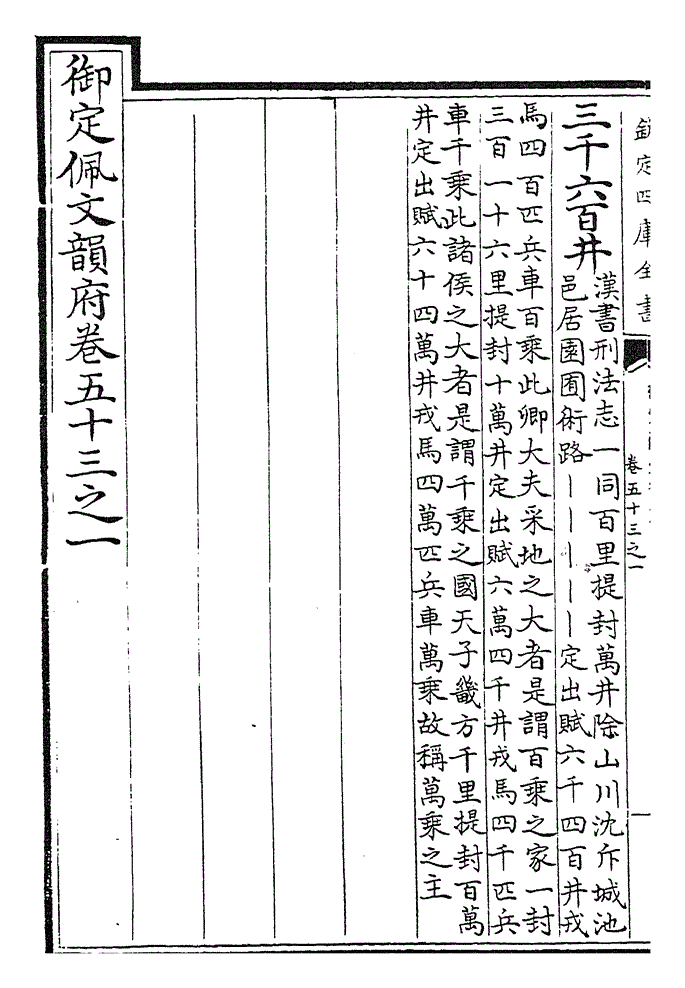 欽定四庫全書
卷五十三之一
三千六百井
漢書刑法志一同百里提封萬井除山川沈斥城池
邑居園囿術路｜｜｜｜｜定出賦六千四百井戎
馬四百匹兵車百乘此卿大夫采地之大者是謂百乘之家一封
三百一十六里提封十萬井定出賦六萬四千井戎馬四千匹兵
車千乘此諸侯之大者是謂千乘之國天子畿方千里提封百萬
井定出賦六十四萬井戎馬四萬匹兵車萬乘故稱萬乘之主
御定佩文韻府卷五十三之一